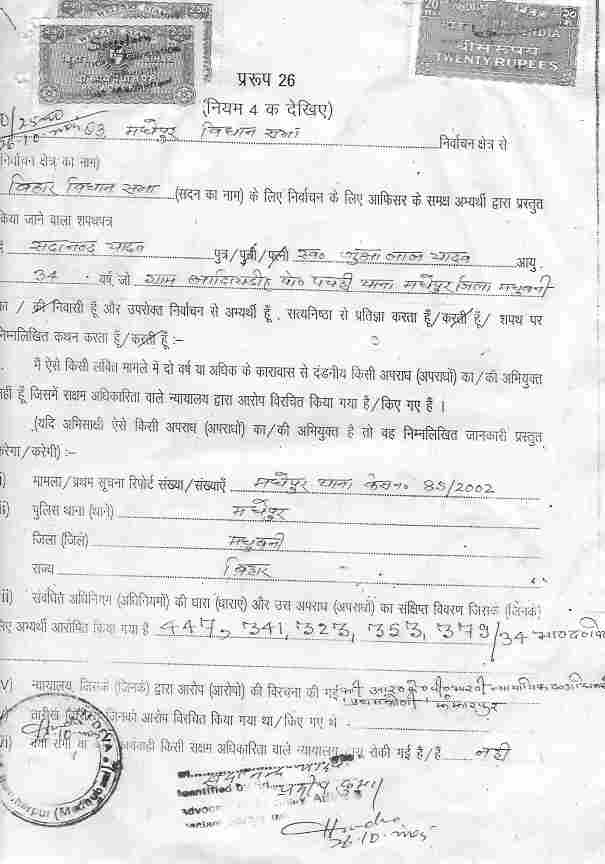 20
बीस रुपये
TWENTY RUPEES
प्ररूप 26
(नियम 4 क देखिए)
63 मधेपुर विधान सभा निर्वाचन क्षेत्र से
निर्वाचन क्षेत्र का नाम)
बिहार विधान सभा (सदन का नाम) के लिए निर्वाचन के लिए आफिसर के समक्ष अभ्यर्थी द्वारा प्रस्तुत
किया जाने वाला शपथपत्र
सदानन्द यादव पुत्र/पुत्री/पत्नी स्व० लाल यादव आयु
34 वर्ष, जो ग्राम पो० पचही थाना मधेपुर जिला मधुबनी
का / की निवासी हूँ और उपरोक्त निर्वाचन से अभ्यर्थी हूँ . सत्यनिष्ठा से प्रतिज्ञा करता हूँ/करती हूँ/ शपथ पर
निम्नलिखित कथन करता हूँ/करती हूँ :-
मै ऐसे किसी लंबित मामले में दो वर्ष या अधिक के कारावास से दंडनीय किसी अपराध (अपराधों) का/की अभियुक्त
नहीं हूँ जिसमें सक्षम अधिकारिता वाले न्यायालय द्वारा आरोप विरचित किया गया है/किए गए हैं ।
(यदि अभिसाक्षी ऐसे किसी अपराध (अपराधों) का/की अभियुक्त है तो वह निम्नलिखित जानकारी प्रस्तुत
करेगा/करेगी) :-
i) मामला/प्रथम सूचना रिपोर्ट संख्या/संख्याएँ मधेपुर थाना केस नं० 85/2002
ii) पुलिस थाना (थाने) मधेपुर
जिला (जिले) मधुबनी
राज्य बिहार
iii) संबंधित अधिनियम (अधिनियमों) की धारा (धाराएं) और उस अपराध (अपराधों) का संक्षिप्त विवरण जिसके (जिनके)
लिए अभ्यर्थी आरोपित किया गया है 447, 341, 323, 353, 379/34 भा०द०वि०
iv) न्यायालय, जिसके (जिनके) द्वारा आरोप (आरोपों) की विरचना की गई
प्रथम श्रेणी झंझारपुर
तारीख जिनको आरोप विरचित किया गया था/किए गए थे
किसी सक्षम अधिकारिता वाले न्यायालय द्वारा रोकी गई है/हैं नहीं
सदानन्द यादव
Identified by
Advocate
26-10-2005